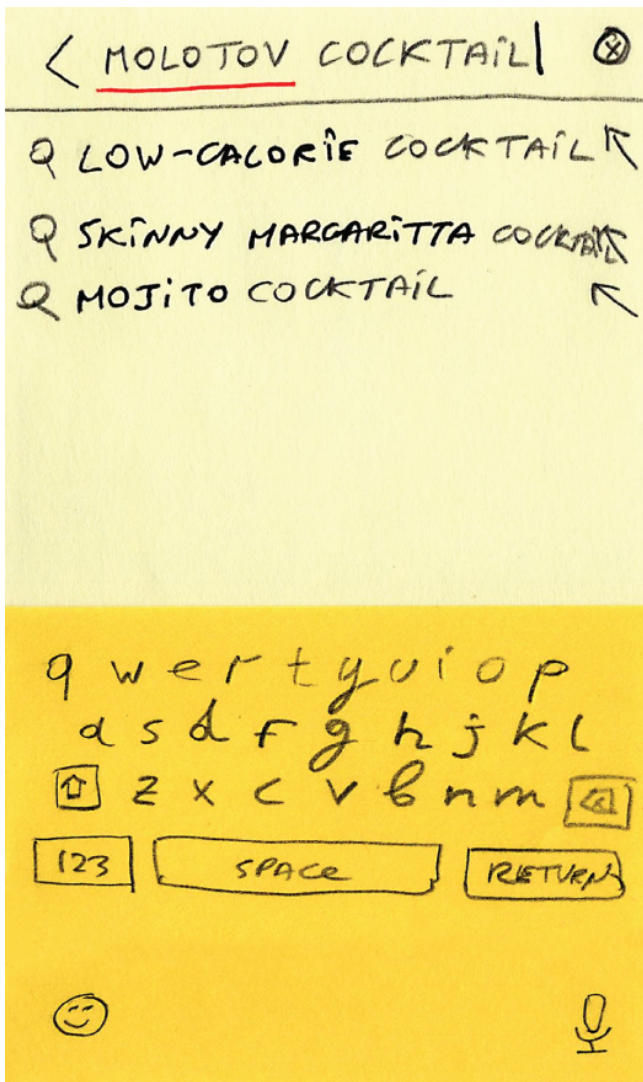 < MOLOTOV COCKTAIL
LOW-CALORIE COCKTAIL
SKINNY MARGARITTA COCKTAIL
MOJITO COCKTAIL
q w e r t y u i o p
a s d f g h j k l
z x c v b n m
123 SPACE RETURN